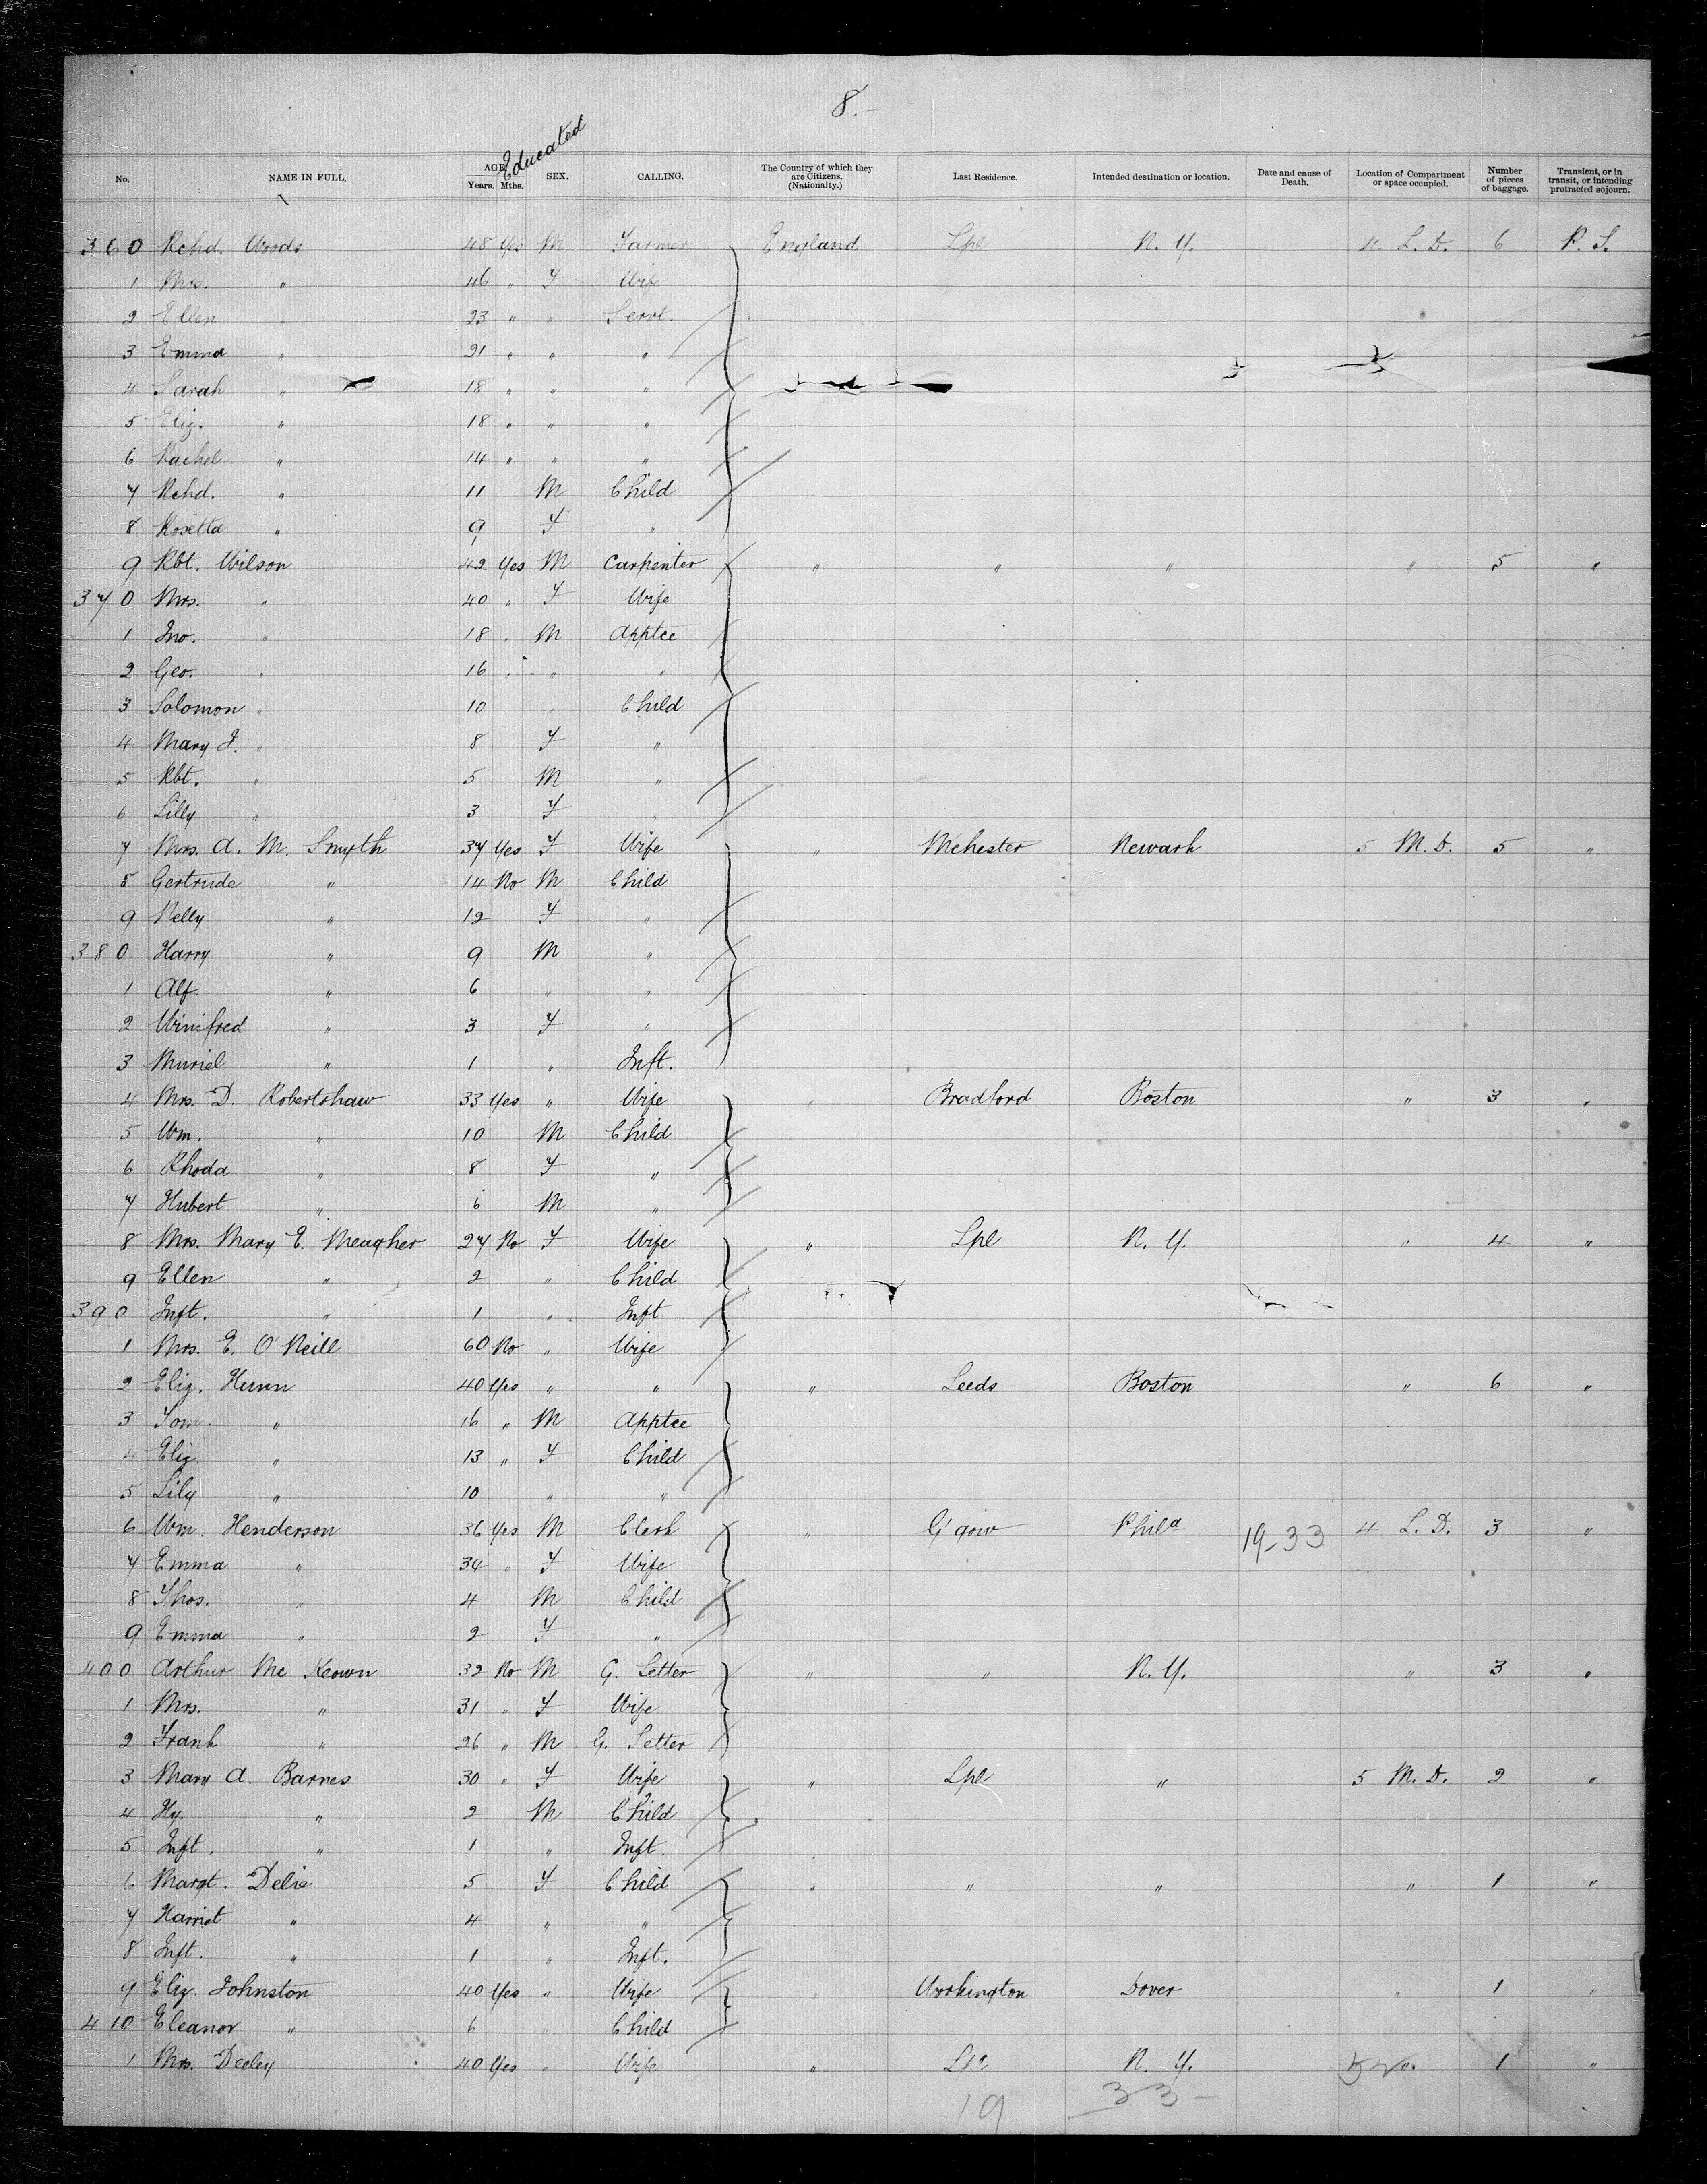 8.-
No. NAME IN FULL. AGE Years. Mths. Educated SEX. CALLING. The Country of which they are Citizens. (Nationalty.) Last Residence. Intended destination or location. Date and cause of Death. Location of Compartment or space occupied. Number of pieces of baggage. Transient, or in transit, or intending protracted sojourn.
360 Rchd. Woods 48 Yes M Farmer England Lpl N. Y. 4 L. D. 6 P. S.
1 Mrs. " 46 " F Wife
2 Ellen " 23 " " Servt.
3 Emma " 21 " " "
4 Sarah " 18 " " "
5 Eliz. " 18 " " "
6 Rachel " 14 " " "
7 Rchd. " 11 M Child
8 Rosetta " 9 F "
9 Rbt. Wilson 42 Yes M Carpenter " " " " 5 "
370 Mrs. " 40 " F Wife
1 Jno. " 18 " M Apptce
2 Geo. " 16 " " "
3 Solomon " 10 " Child
4 Mary J. " 8 F "
5 Rbt. " 5 M "
6 Lilly " 3 F "
7 Mrs. A. M. Smyth 37 Yes F Wife " M'chester Newark 5 M. D. 5 "
8 Gertrude " 14 No M Child
9 Nelly " 12 F "
380 Harry " 9 M "
1 Alf. " 6 " "
2 Winifred " 3 F "
3 Muriel " 1 " Inft.
4 Mrs. D. Robertshaw 33 Yes " Wife " Bradford Boston " 3 "
5 Wm. " 10 M Child
6 Rhoda " 8 F "
7 Hubert " 6 M "
8 Mrs. Mary E. Meagher 27 No F Wife " Lpl N. Y. " 4 "
9 Ellen " 2 " Child
390 Inft. " 1 " Inft
1 Mrs. E. O'Neill 60 No " Wife
2 Eliz. Hunn 40 Yes " " " Leeds Boston " 6 "
3 Tom. " 16 " M Apptce
4 Eliz. " 13 " F Child
5 Lily " 10 " "
6 Wm. Henderson 36 Yes M Clerk " G'gow Phila 19-33 4 L. D. 3 "
7 Emma " 34 " F Wife
8 Thos. " 4 M Child
9 Emma " 2 F "
400 Arthur Mc Keown 32 No M G. Setter " " N. Y. " 3 "
1 Mrs. " 31 " F Wife
2 Frank " 26 " M G. Setter
3 Mary A. Barnes 30 " F Wife " Lpl " 5 M. D. 2 "
4 Hy. " 2 M Child
5 Inft. " 1 " Inft.
6 Margt. Delie 5 F Child " " " " 1 "
7 Harriet " 4 " "
8 Inft. " 1 " Inft.
9 Eliz. Johnston 40 Yes " Wife " Workington Dover " 1 "
410 Eleanor " 6 " Child
1 Mrs. Deeley 40 Yes " Wife " Lpl N. Y. " 1 "
19 33-